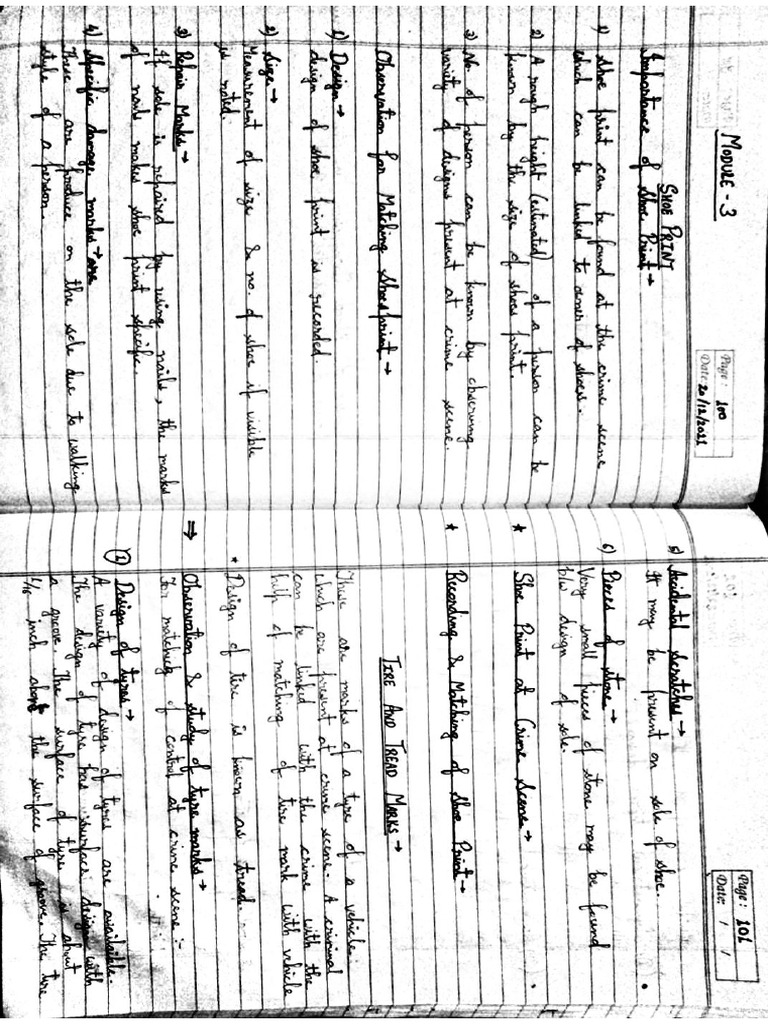 Page: 100
Date: 20/12/2021
MODULE - 3
SHOE PRINT
Importance of Shoe Print →
1) Shoe print can be found at the crime scene
which can be linked to owner of shoes.
2) A rough height (estimated) of a person can be
known by the size of shoes print.
3) No. of person can be known by observing
variety of designs present at crime scene.
Observation for Matching Shoe print →
1) Design →
design of shoe print is recorded.
2) Size →
Measurement of size & no. of shoe if visible
is noted.
3) Repair Marks →
If sole is repaired by using nails, the marks
of nails makes shoe print specific.
4) Specific damage marks → are
These are produce on the sole due to walking
style of a person.
Page: 101
Date: / /
5) Accidental Scratches →
It may be present on sole of shoe.
6) Pieces of stone →
Very small pieces of stone may be found
b/w design of sole.
* Shoe Print at Crime Scene →
* Recording & Matching of Shoe Print →
TIRE AND TREAD MARKS →
These are marks of a tyre of a vehicle
which are present at crime scene. A criminal
can be linked with the crime with the
help of matching of tire mark with vehicle
* Design of tire is known as tread.
⇒ Observation & study of tyre marks →
For matching of control at crime scene :-
① Design of tyres →
A variety of design of tyres are available.
The design of tyre has surface design with
a groove. The surface of tyre is about
1/16 inch above the surface of groove. The tyre